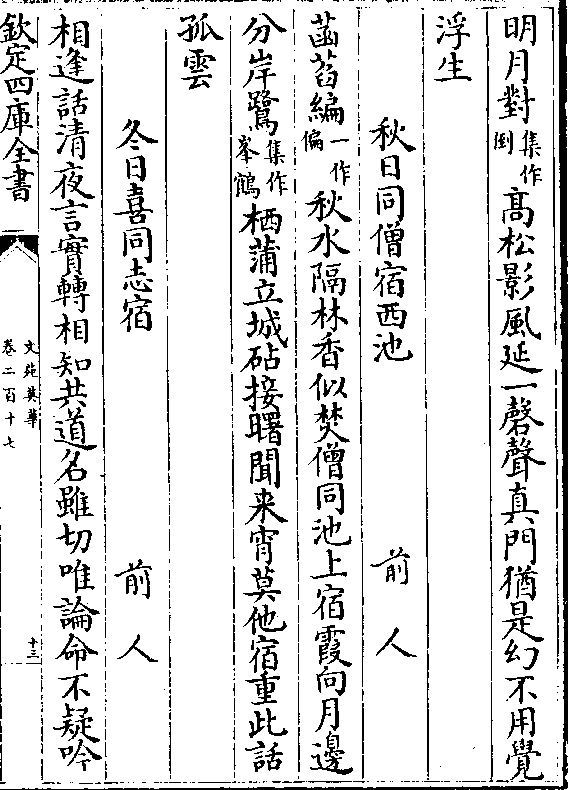 明月對集作倒高松影風延一磬聲真門猶是幻不用覺
浮生
秋日同僧宿西池　前人
菡萏編一作偏秋水隔林香似焚僧同池上宿霞向月邊
分岸鷺集作峯鶴栖蒲立城砧接曙聞来宵莫他宿重此話
孤雲
冬日喜同志宿　前人
相逢話清夜言實轉相知共道名雖切唯論命不疑吟
欽定四庫全書
文苑英華
卷二百十七
十三